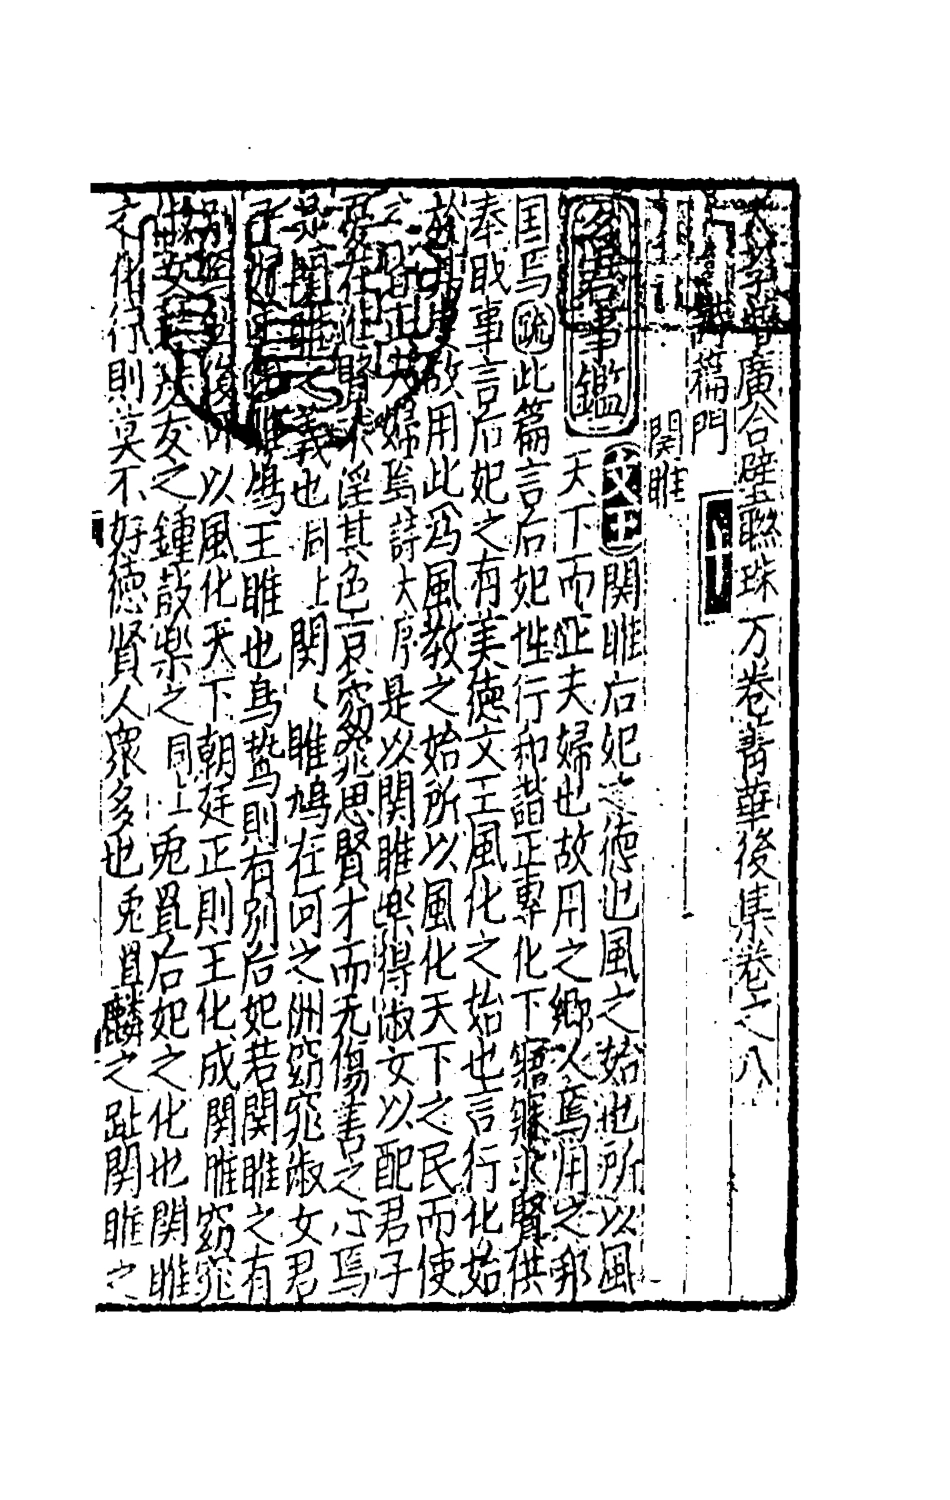 太學增廣合璧聯珠万卷菁華後集卷之八
詩篇門
関雎
君事鑑
文王関雎后妃之徳也風之始也所以風
天下而正夫婦也故用之郷人焉用之邦
国焉疏此篇言后妃性行和諧正專化下寤寐求賢供
奉敢事言后妃之有美徳文王風化之始也言行化始
於故用此为風教之始所以風化天下之民而使
之皆正夫婦焉詩大序是以関雎樂得淑女以配君子
憂在進賢不淫其色哀窈窕思賢才而无傷善之心焉
是関雎之義也同上関〻雎鳩在河之洲窈窕淑女君
子好逑雎鳩王雎也鳥摯則有別后妃若関雎之有
別焉然後可以風化天下朝廷正則王化成関雎窈窕
淑女琴瑟友之鍾鼓楽之同上兎罝后妃之化也関雎
之化行則莫不好徳賢人衆多也兎罝麟之趾関雎之